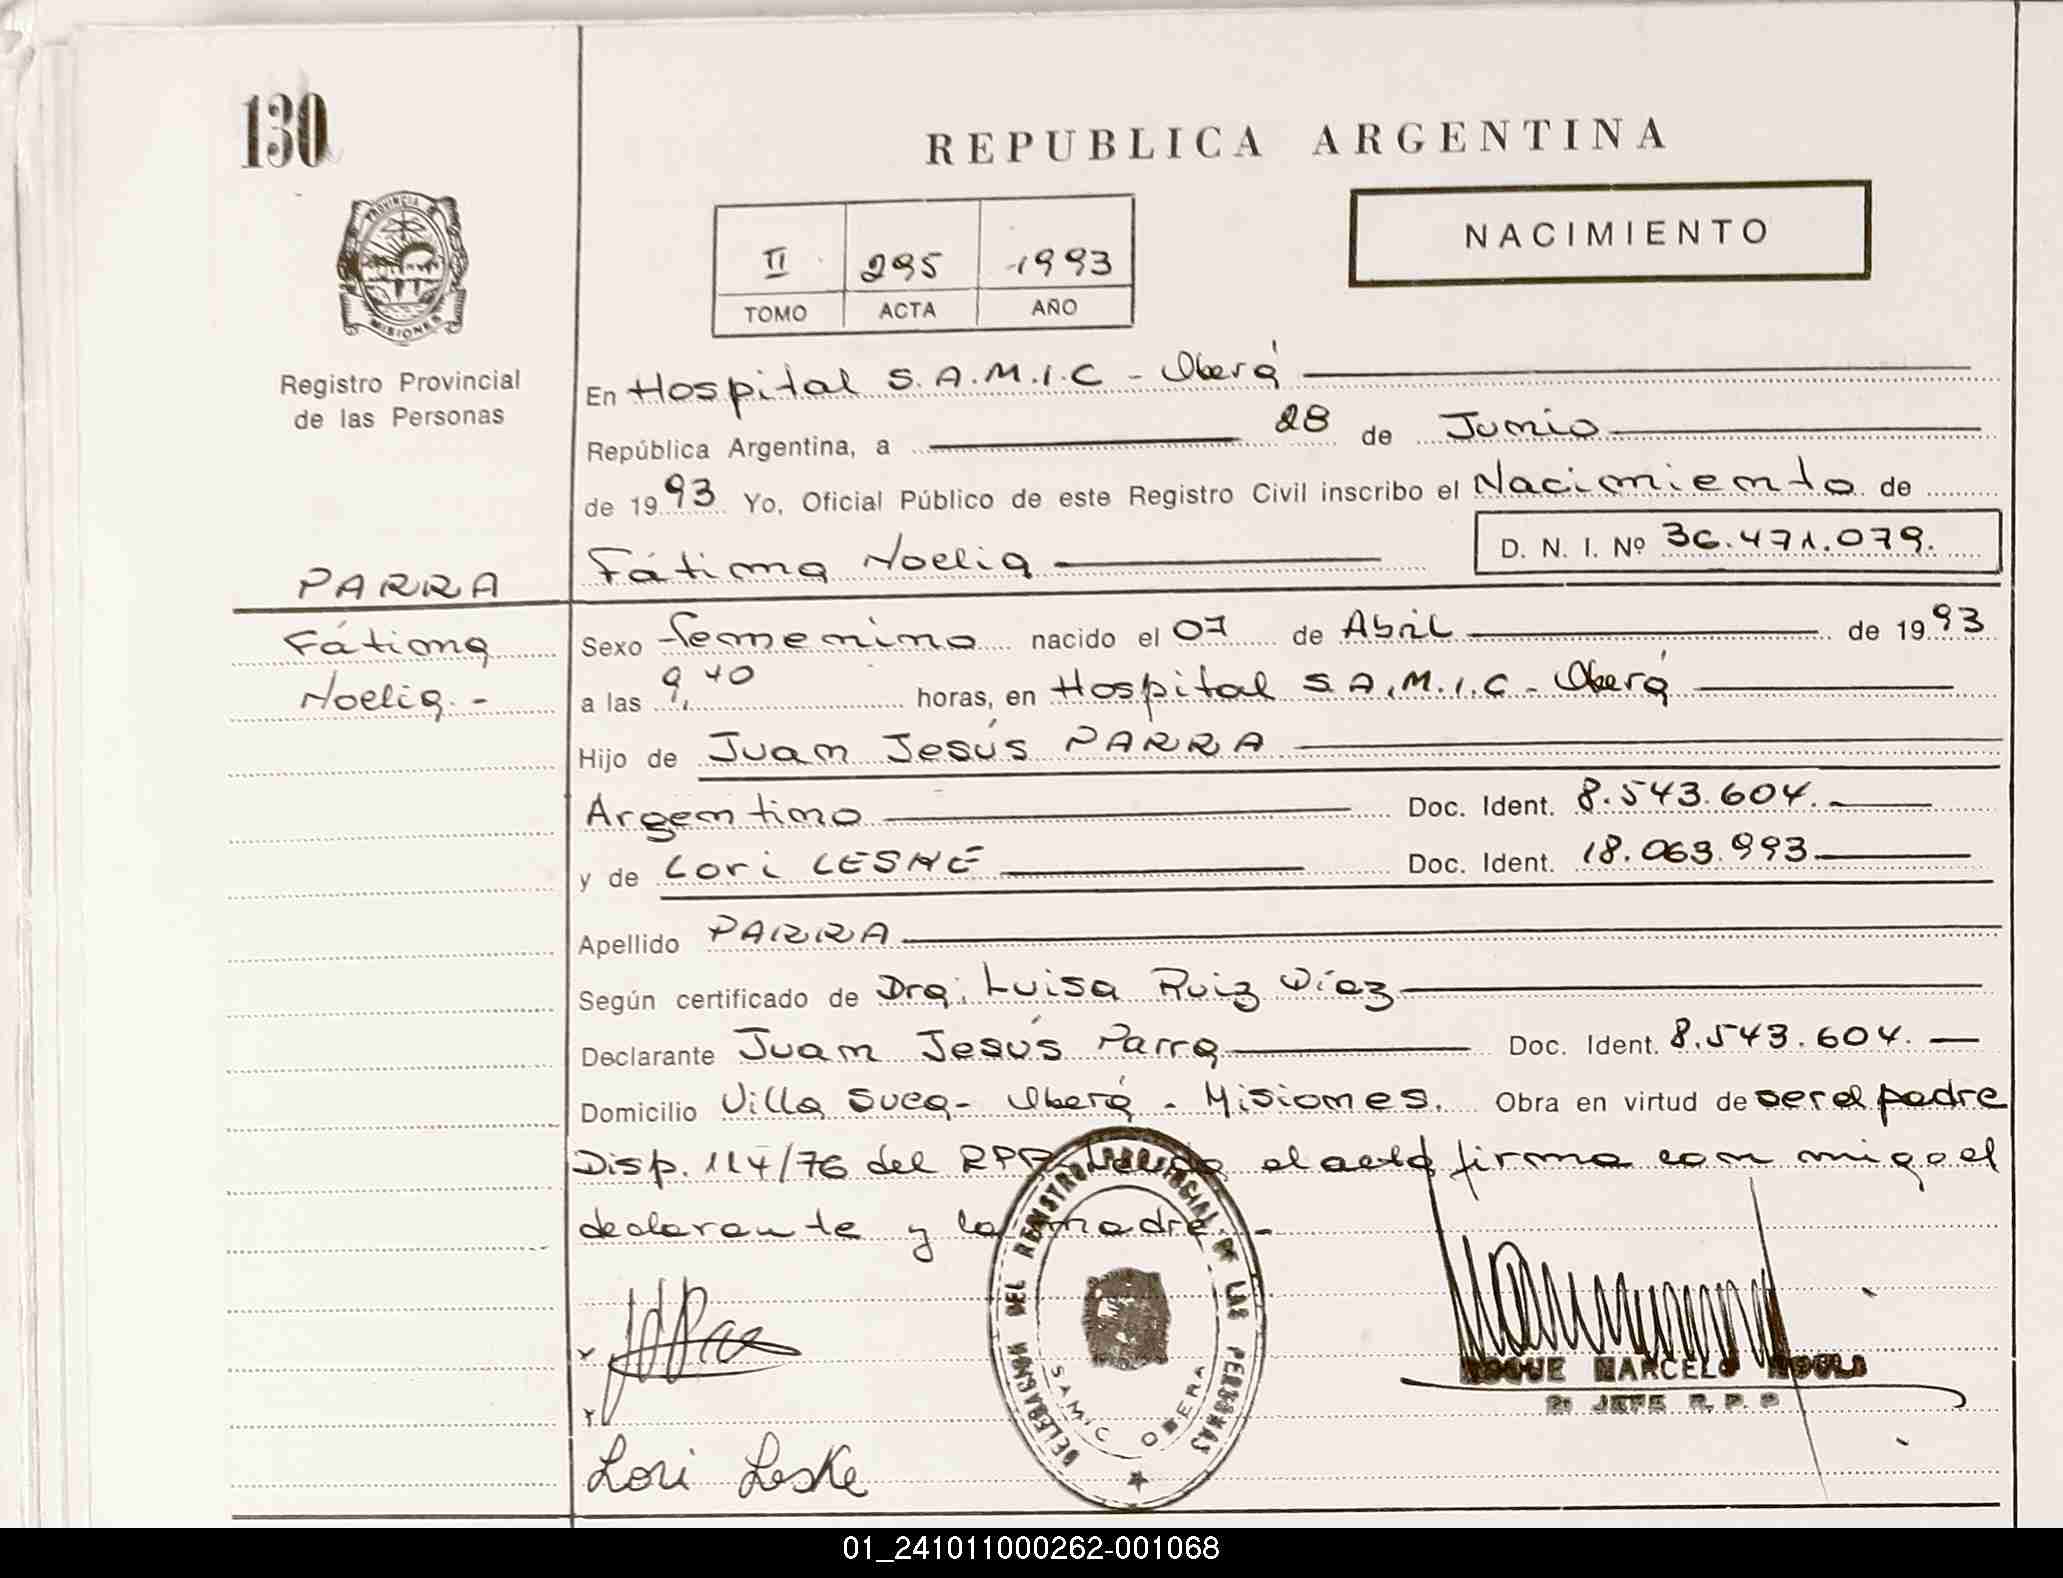 130
REPUBLICA ARGENTINA
PROVINCIA DE MISIONES
NACIMIENTO
II 295 1993
TOMO ACTA AÑO
Registro Provincial
de las Personas
En Hospital S.A.M.I.C - Oberá
República Argentina, a 28 de Junio
de 1993 Yo, Oficial Público de este Registro Civil inscribo el Nacimiento de
Fátima Noelia D. N. I. Nº 36.471.079.
PARRA
Fátima
Noelia.-
Sexo femenino nacido el 07 de Abril de 1993
a las 9,40 horas, en Hospital S.A.M.I.C - Oberá
Hijo de Juan Jesús PARRA
Argentino Doc. Ident. 8.543.604.
y de Lori LESKE Doc. Ident. 18.063.993
Apellido PARRA
Según certificado de Dra. Luisa Ruiz Díaz
Declarante Juan Jesús Parra Doc. Ident. 8.543.604.
Domicilio Villa Sueca - Oberá - Misiones. Obra en virtud de ser el padre
Disp. 114/76 del RPP. Leida el acta firma con migo el
declarante y la madre.-
DELEGACION DEL REGISTRO PROVINCIAL DE LAS PERSONAS
SAMIC OBERA
ROQUE MARCELO
2º JEFE R. P. P.
Lori Leske
01_241011000262-001068